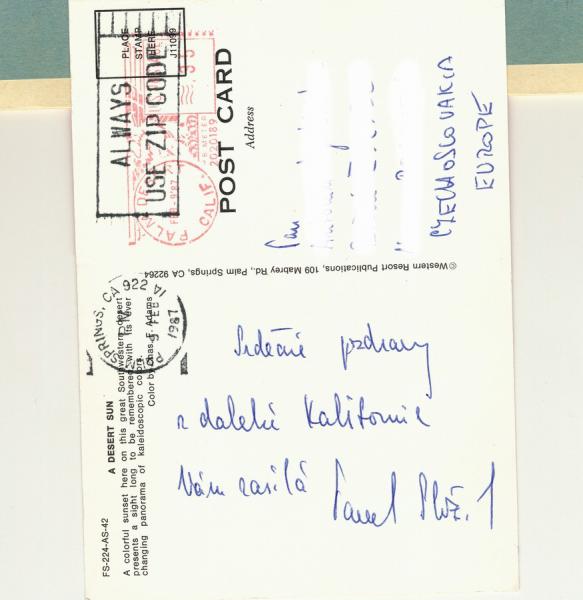 FS-224-AS-42
A DESERT SUN
A colorful sunset here on this great Southwestern desert
presents a sight long to be remembered with its ever
changing panorama of kaleidoscopic colors.
Color by Chas. F. Adams
SPRINGS, CA 922
9 FEB
1987
Srdečné pozdravy
z daleké Kalifornie
Vám zasílá Pavel
©Western Resort Publications, 109 Mabrey Rd., Palm Springs, CA 92264
POST CARD
Address
PLACE
STAMP
HERE
J11099
ALWAYS
USE ZIP CODE
PALM DE
CALIF.
FEB -9'87
METER
CZECHOSLOVAKIA
EUROPE